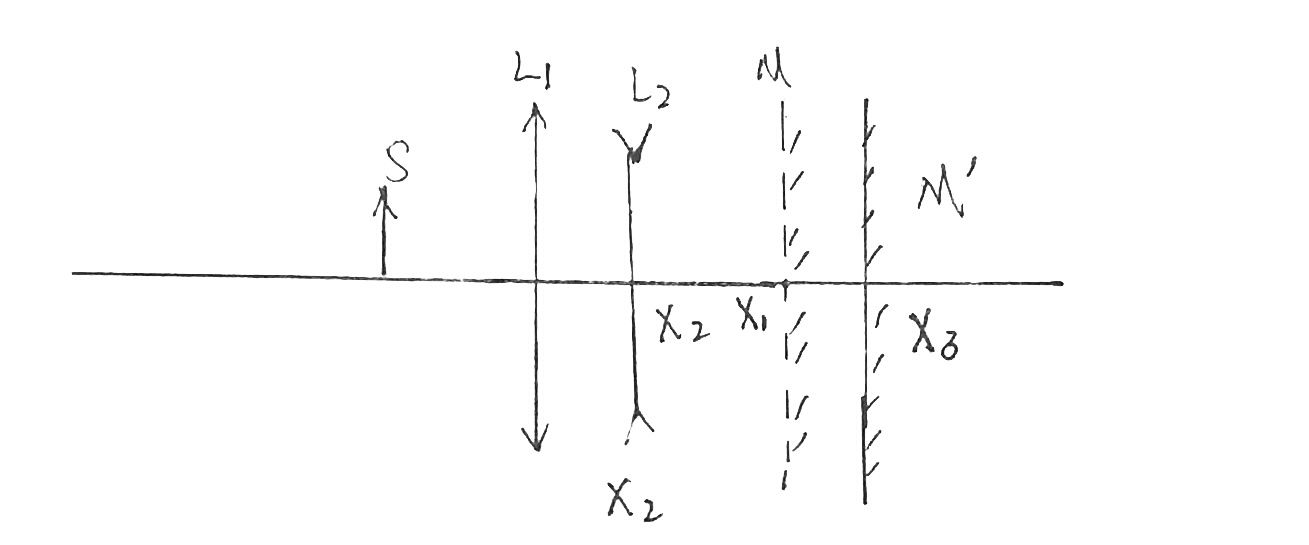 L₁
L₂
M
S
M'
X₂
X₁
X₃
X₂